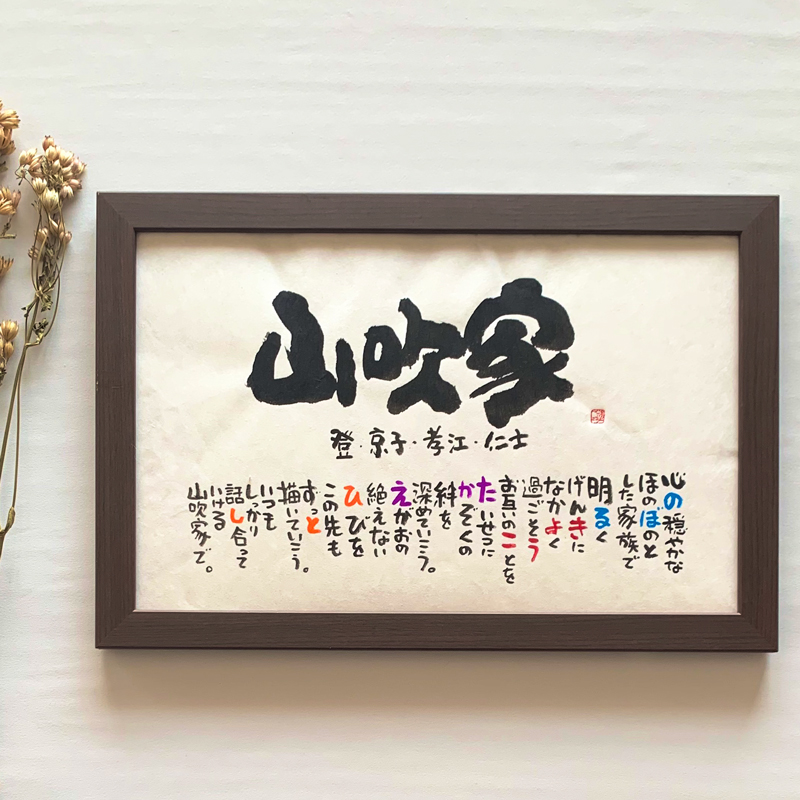 山吹家
登・京子・孝江・仁士
心の穏やかな
ほのぼのと
した家族で
明るく
げんきに
なかよく
過ごそう
お互いのことを
たいせつに
かぞくの
絆を
深めていこう。
えがおの
絶えない
ひびを
この先も
ずっと
描いていこう。
いつも
しっかり
話し合って
いける
山吹家で。